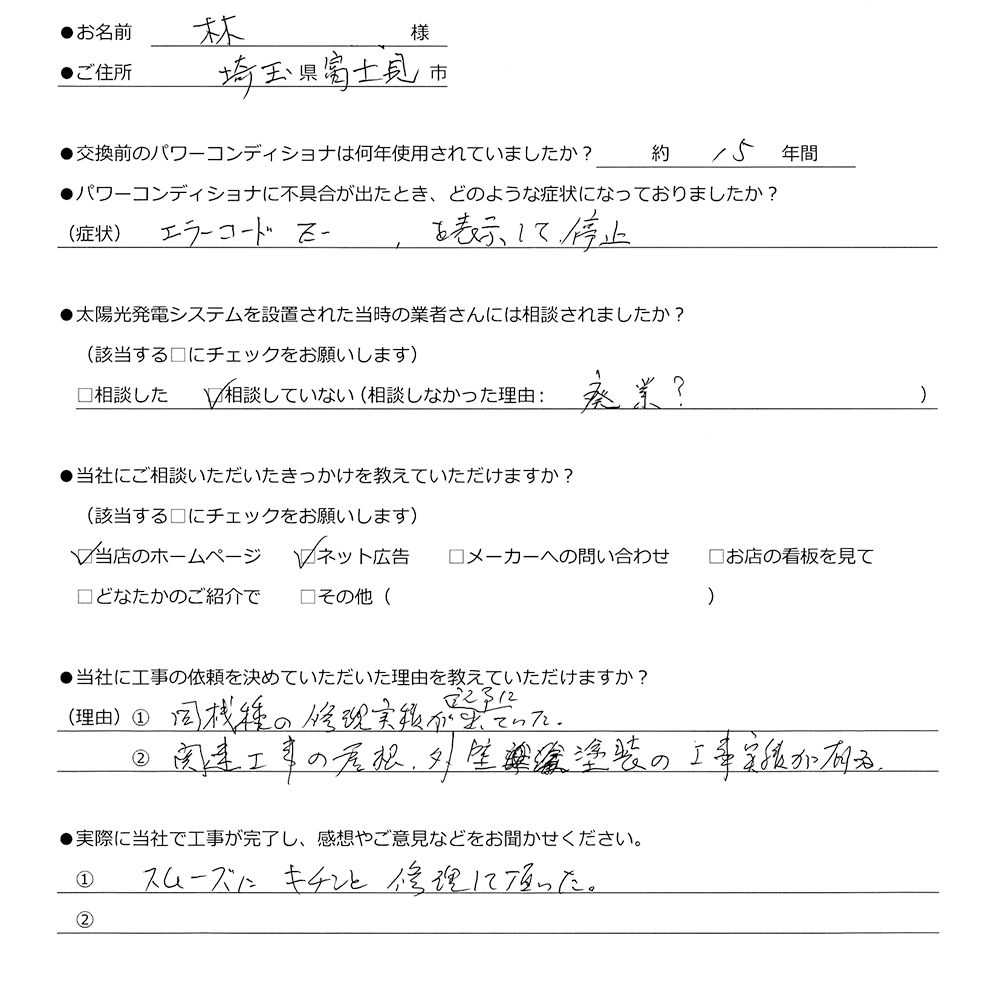 ●お名前 林 様
●ご住所 埼玉県富士見市
●交換前のパワーコンディショナは何年使用されていましたか？ 約 15 年間
●パワーコンディショナに不具合が出たとき、どのような症状になっておりましたか？
（症状） エラーコード E- 、を表示して停止
●太陽光発電システムを設置された当時の業者さんには相談されましたか？
（該当する□にチェックをお願いします）
□相談した ☑相談していない（相談しなかった理由： 廃業？ ）
●当社にご相談いただいたきっかけを教えていただけますか？
（該当する□にチェックをお願いします）
☑当店のホームページ ☑ネット広告 □メーカーへの問い合わせ □お店の看板を見て
□どなたかのご紹介で □その他（ ）
●当社に工事の依頼を決めていただいた理由を教えていただけますか？
（理由）① 同機種の修理実績が出ていた。
② 関連工事の屋根、外壁塗装の工事実績が有る。
●実際に当社で工事が完了し、感想やご意見などをお聞かせください。
① スムーズにキチンと修理して頂いた。
②